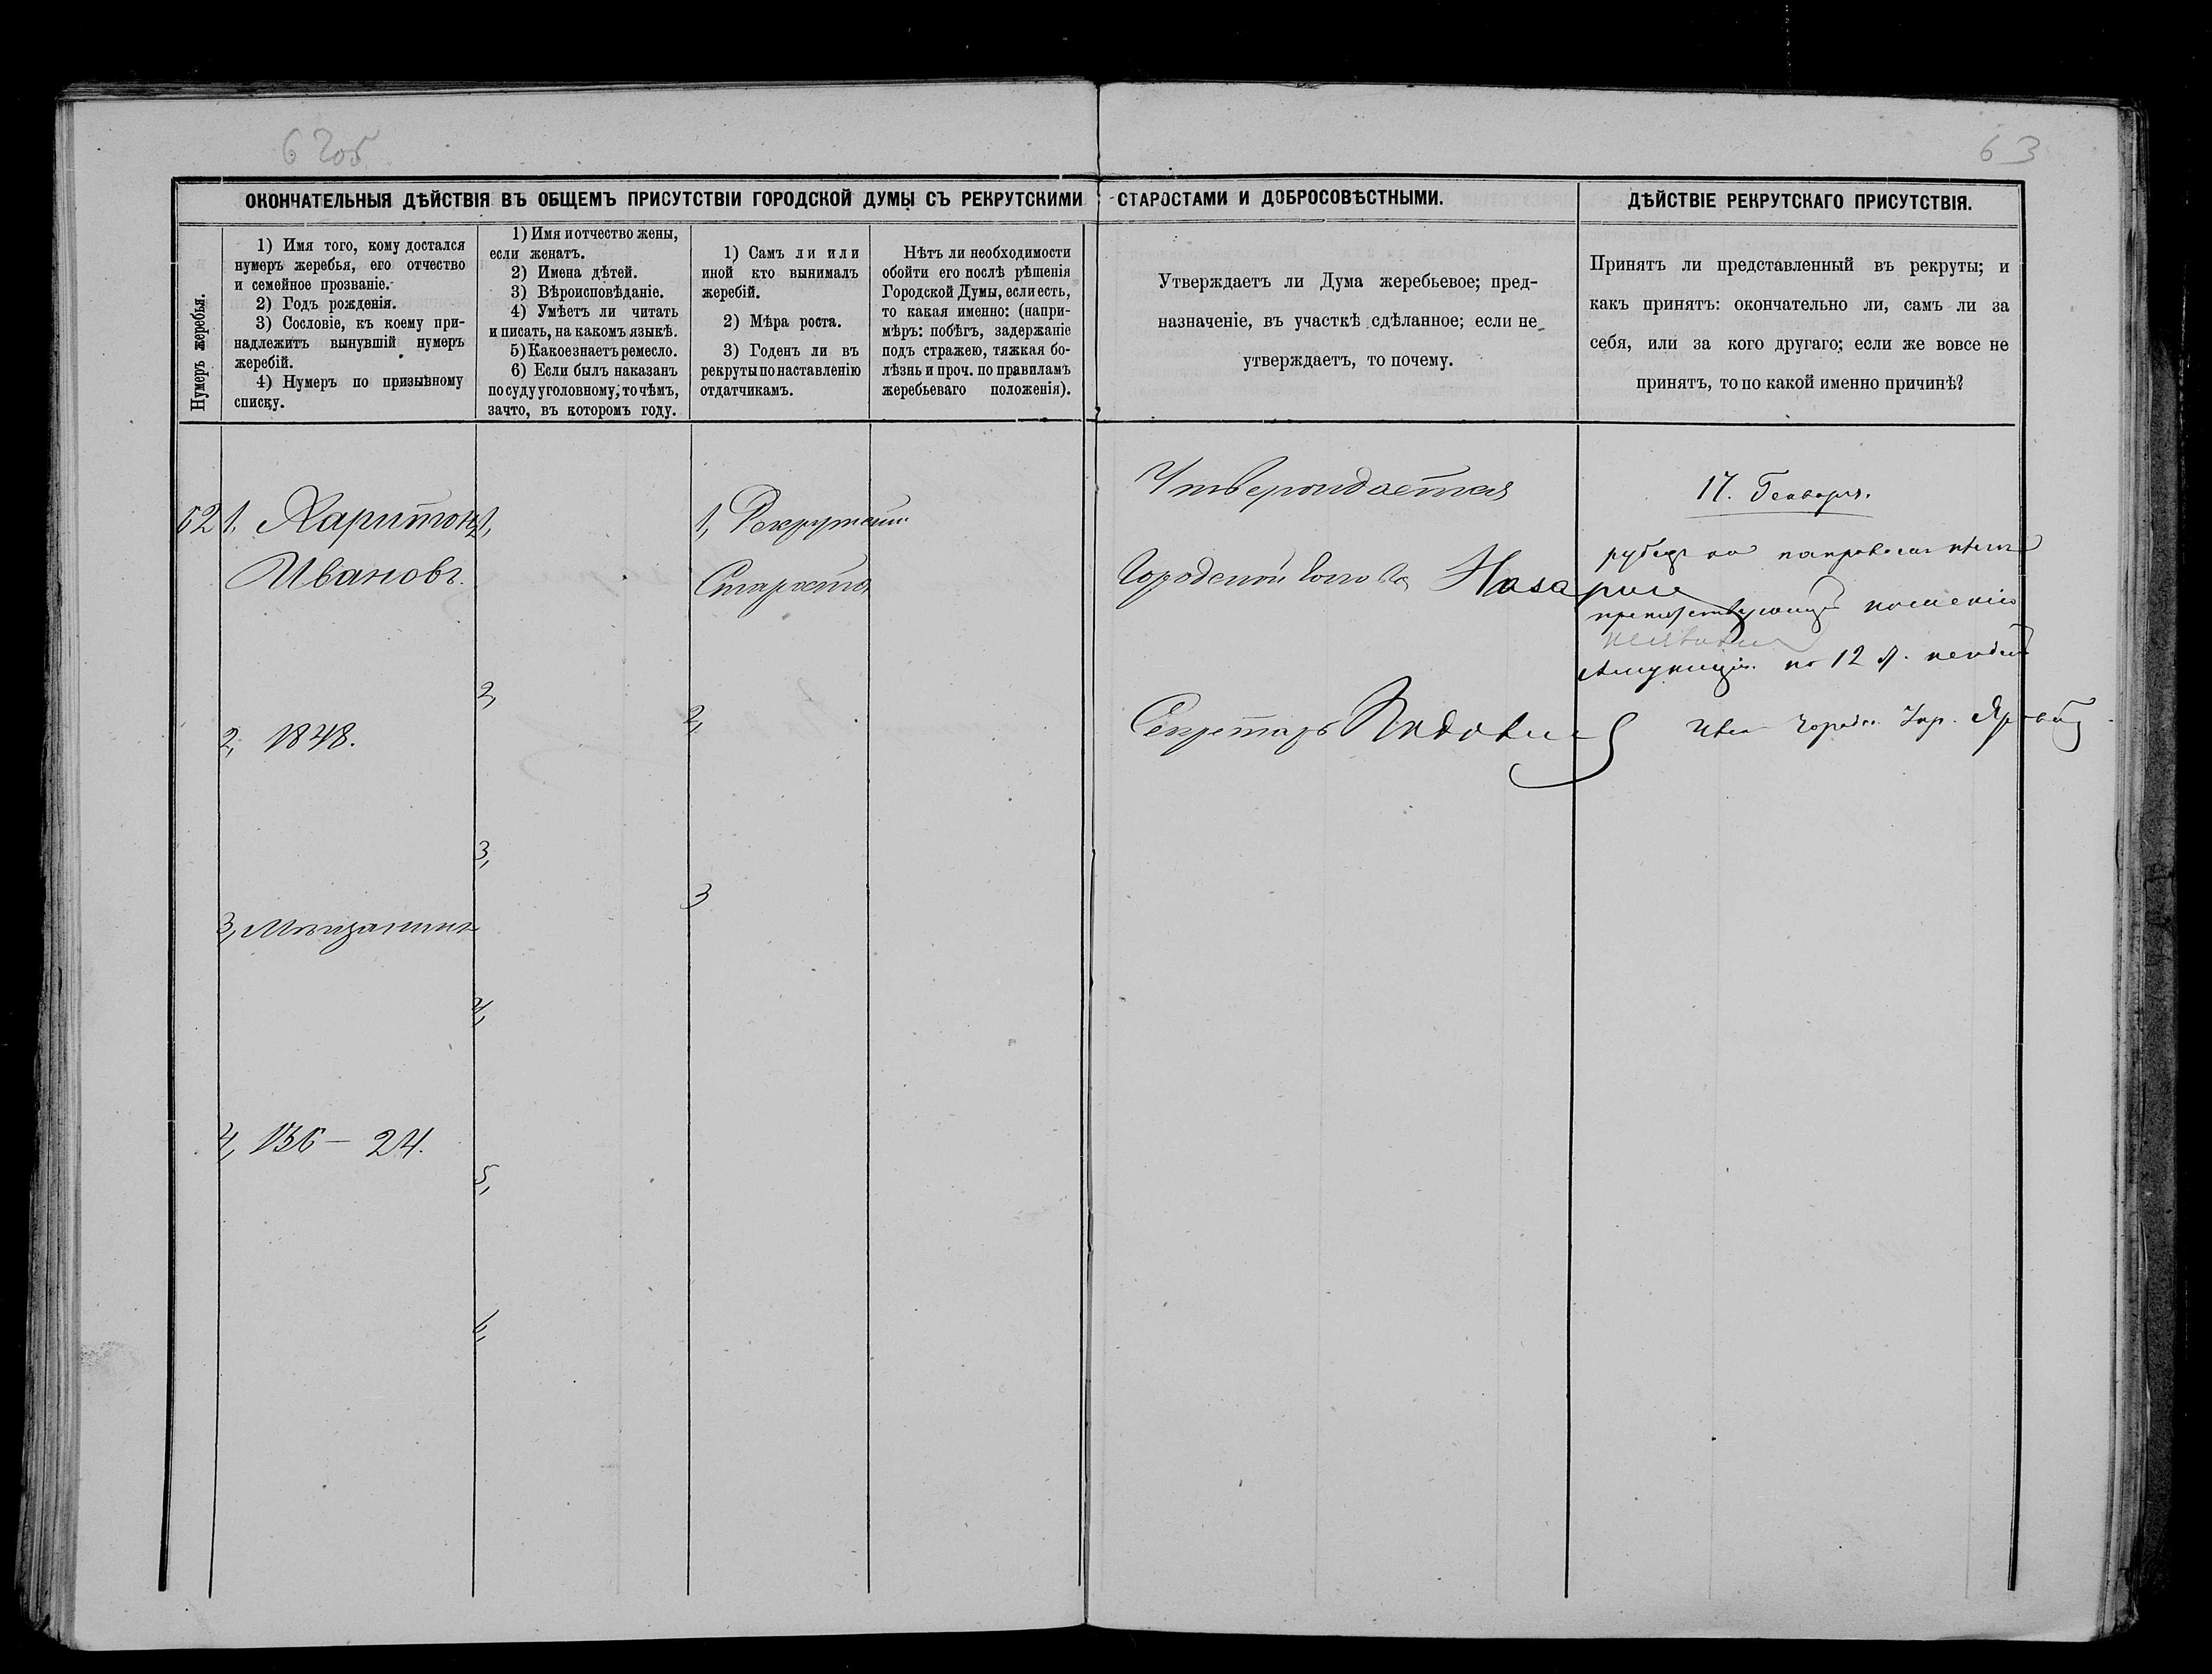 6205
63
ОКОНЧАТЕЛЬНЫЯ ДѢЙСТВІЯ ВЪ ОБЩЕМЪ ПРИСУТСТВІИ ГОРОДСКОЙ ДУМЫ СЪ РЕКРУТСКИМИ СТАРОСТАМИ И ДОБРОСОВѢСТНЫМИ.
ДѢЙСТВІЕ РЕКРУТСКАГО ПРИСУТСТВІЯ.
Нумеръ жеребья.
1) Имя того, кому достался
нумеръ жеребья, его отчество
и семейное прозваніе.
2) Годъ рожденія.
3) Сословіе, къ коему при-
надлежитъ вынувшій нумеръ
жеребій.
4) Нумеръ по призывному
списку.
1) Имя и отчество жены,
если женатъ.
2) Имена дѣтей.
3) Вѣроисповѣданіе.
4) Умѣетъ ли читать
и писать, на какомъ языкѣ.
5) Какое знаетъ ремесло.
6) Если былъ наказанъ
по суду уголовному, то чѣмъ,
за что, въ которомъ году.
1) Самъ ли или
иной кто вынималъ
жеребій.
2) Мѣра роста.
3) Годенъ ли въ
рекруты по наставленію
отдатчикамъ.
Нѣтъ ли необходимости
обойти его послѣ рѣшенія
Городской Думы, если есть,
то какая именно: (напри-
мѣръ: побѣгъ, задержаніе
подъ стражею, тяжкая бо-
лѣзнь и проч. по правиламъ
жеребьеваго положенія).
Утверждаетъ ли Дума жеребьевое; пред-
назначеніе, въ участкѣ сдѣланное; если не
утверждаетъ, то почему.
Принятъ ли представленный въ рекруты; и
какъ принятъ: окончательно ли, самъ ли за
себя, или за кого другаго; если же вовсе не
принятъ, то по какой именно причинѣ?
52
1, Харитонъ
Ивановъ.
2, 1848.
3, Мѣщанинъ
4, 136 — 24.
1,
2,
3,
4,
5,
6,
1, Рекрутскій
Староста
2,
3
Утверждается
Городской Голова
Секретарь
17. Генваря.
рубецъ на
препятствующій ношенію
Амуниціи. по 12 л.